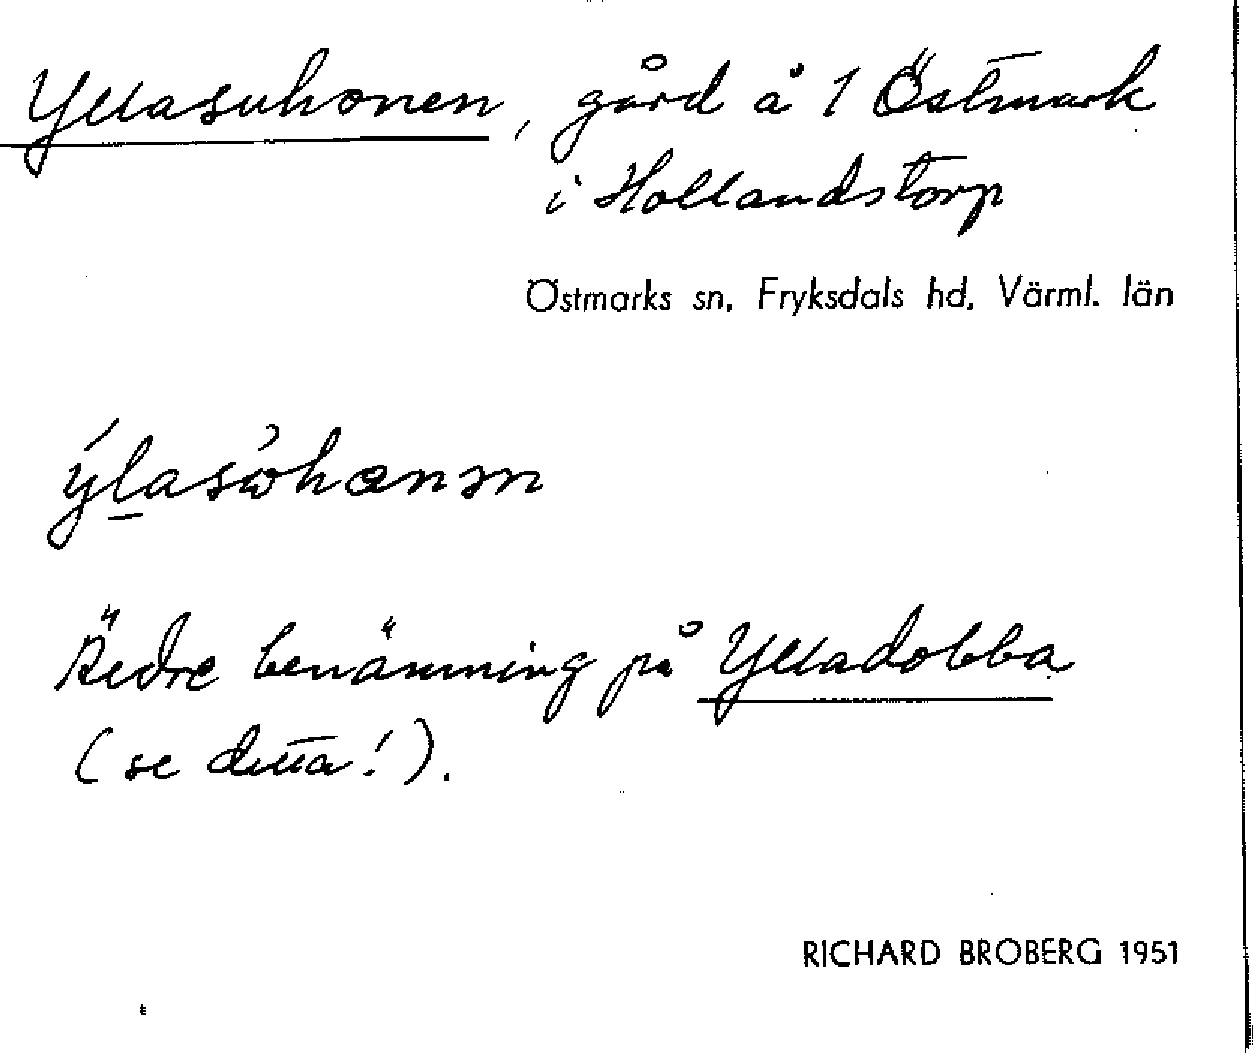 Yllasuhonen, gård å 1 Östmark
i Hollandstorp
Östmarks sn, Fryksdals hd, Värml. län
Äldre benämning på Ylladobba
(se detta!).
RICHARD BROBERG 1951